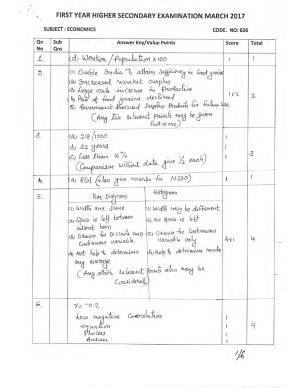 FIRST YEAR HIGHER SECONDARY EXAMINATION MARCH 2017
SUBJECT : ECONOMICS CODE. NO: 626
Qn No Sub Qns Answer Key/Value Points Score Total
1. (d) Workers / Population x 100 1 1
2. a) Enable India to attain sufficiency in food grains
b) Increased market surplus
c) Large scale increase in Production
d) Price of food grains declined 1x2 2
e) Government Procured Surplus Products for future use
(Any two relevant points may be given
full score)
3. (a) 218/1000 1
(b) 32 years 1
(c) Less than 16% 1 3
(Comparison without data give ½ each)
4. (a) RGI (also give marks for NSSO) 1 1
5. Bar Diagram Histogram
(a) Width are same (a) Width may be different
(b) Space is left between (b) Space is left
adjacent bars
(c) Drawn for Discrete and (c) Drawn for Continuous
Continuous variable variable only 4x1 4
(d) Not help to determine (d) Help to determine mode
any average
(Any other relevant points also may be
considered)
6. r = -0.2 1
Low negative Correlation 1
equation 1 4
Process
Answer 1
1/6